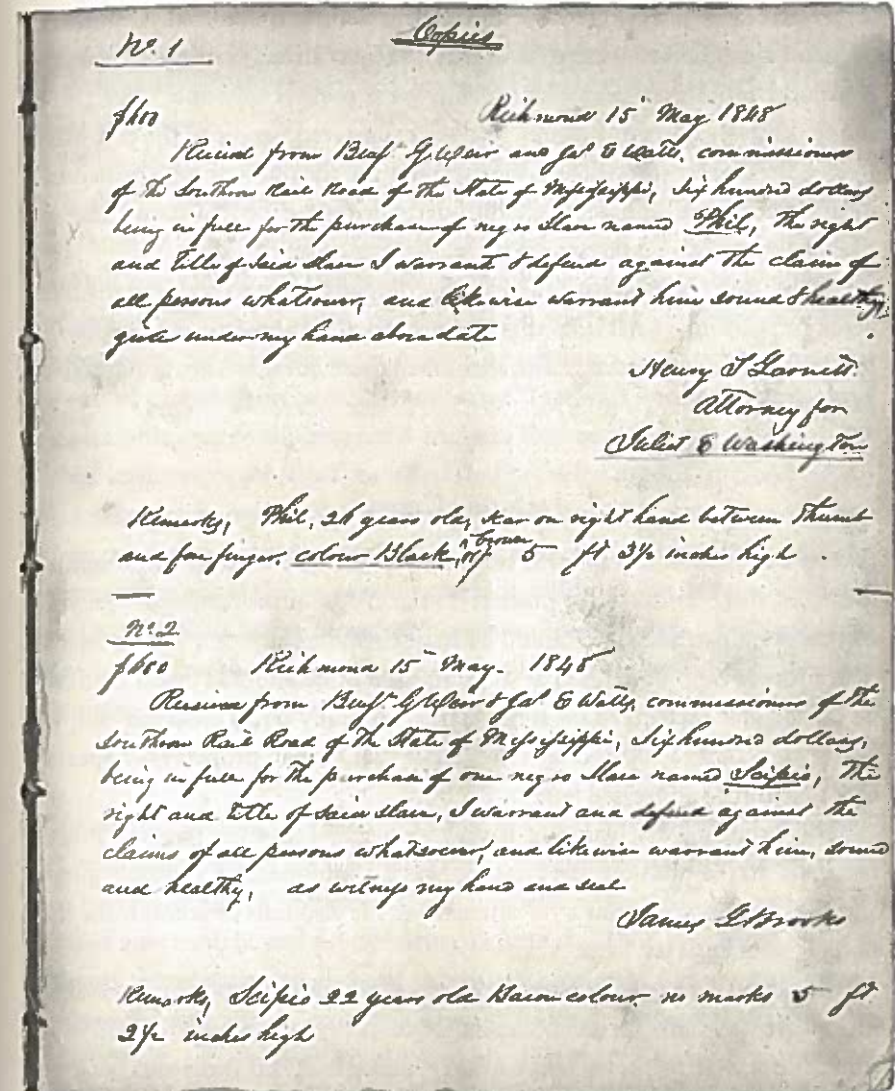 Copies
No. 1
$600 Richmond 15 May 1848
Received from Benjn G Weir and Jas E Watts, commissioners
of the Southron Rail Road of the State of Mississippi, Six hundred dollars
being in full for the purchase of negro Slave named Phil, The right
and title of said slave I warrant & defend against the claim of
all persons whatsoever, and likewise warrant him sound & healthy,
given under my hand above date
Henry T Garnett
Attorney for
Juliet E Washington
Remarks, Phil, 26 years old, scar on right hand between thumb
and fore finger. colour Black, or brown 5 ft 3½ inches high
No. 2
$600 Richmond 15 May. 1848
Received from Benjn G Weir & Jas E Watts, commissioners of the
Southron Rail Road of the State of Mississippi, Six hundred dollars,
being in full for the purchase of one negro Slave named Scipio, The
right and title of said slave, I warrant and defend against the
claims of all persons whatsoever, and likewise warrant him, sound
and healthy, as witness my hand and seal
James G Brooks
Remarks, Scipio 22 years old Bacon colour no marks 5 ft
2½ inches high